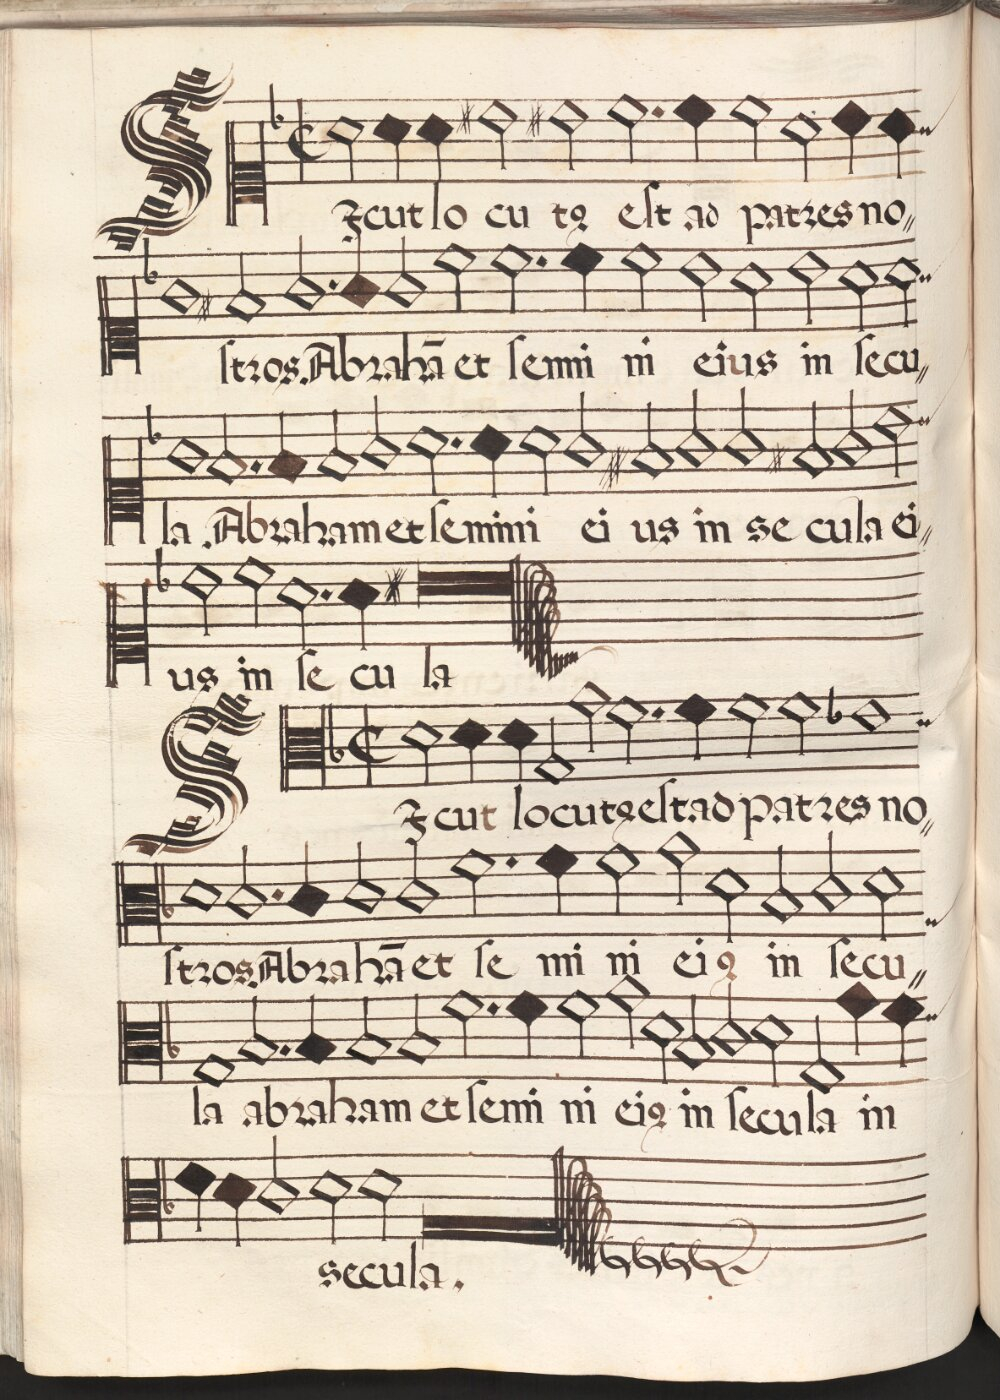 SIcut lo cu tꝰ est ad patres no,,
stros. Abrahā et semi ni eius in secu,,
la. Abraham et semini ei us in se cula ei,,
us in se cu la
SIcut locutꝰ est ad patres no,,
stros Abrahā et se mi ni eiꝰ in secu,,
la abraham et semi ni eiꝰ in secula in
secula.